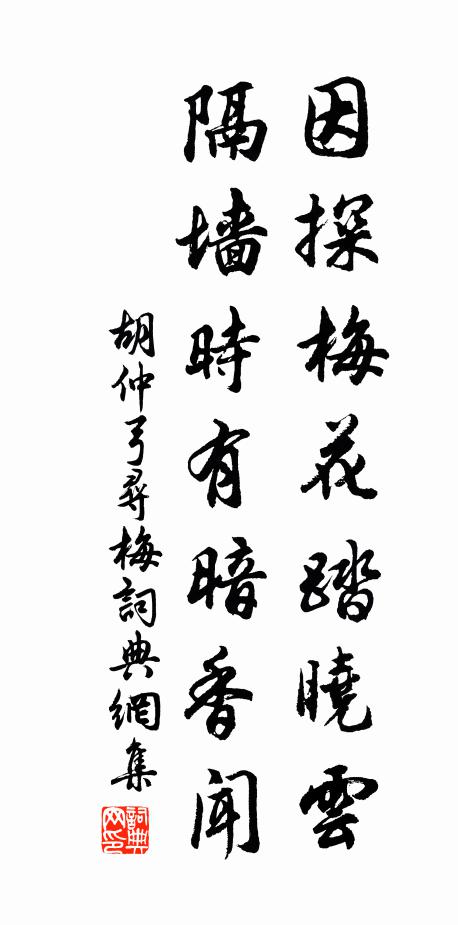 因探梅花踏曉雲
隔墙時有暗香聞
胡仲弓尋梅詞典網集
詞典网印